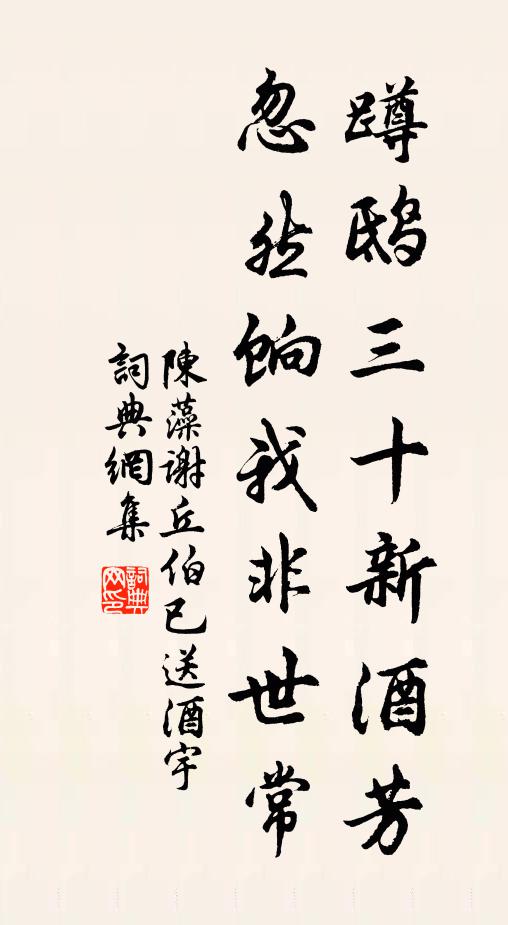 蹲鴟三十新酒芳
忽然餉我非世常
陳藻謝丘伯已送酒宇
詞典網集
詞典
网印